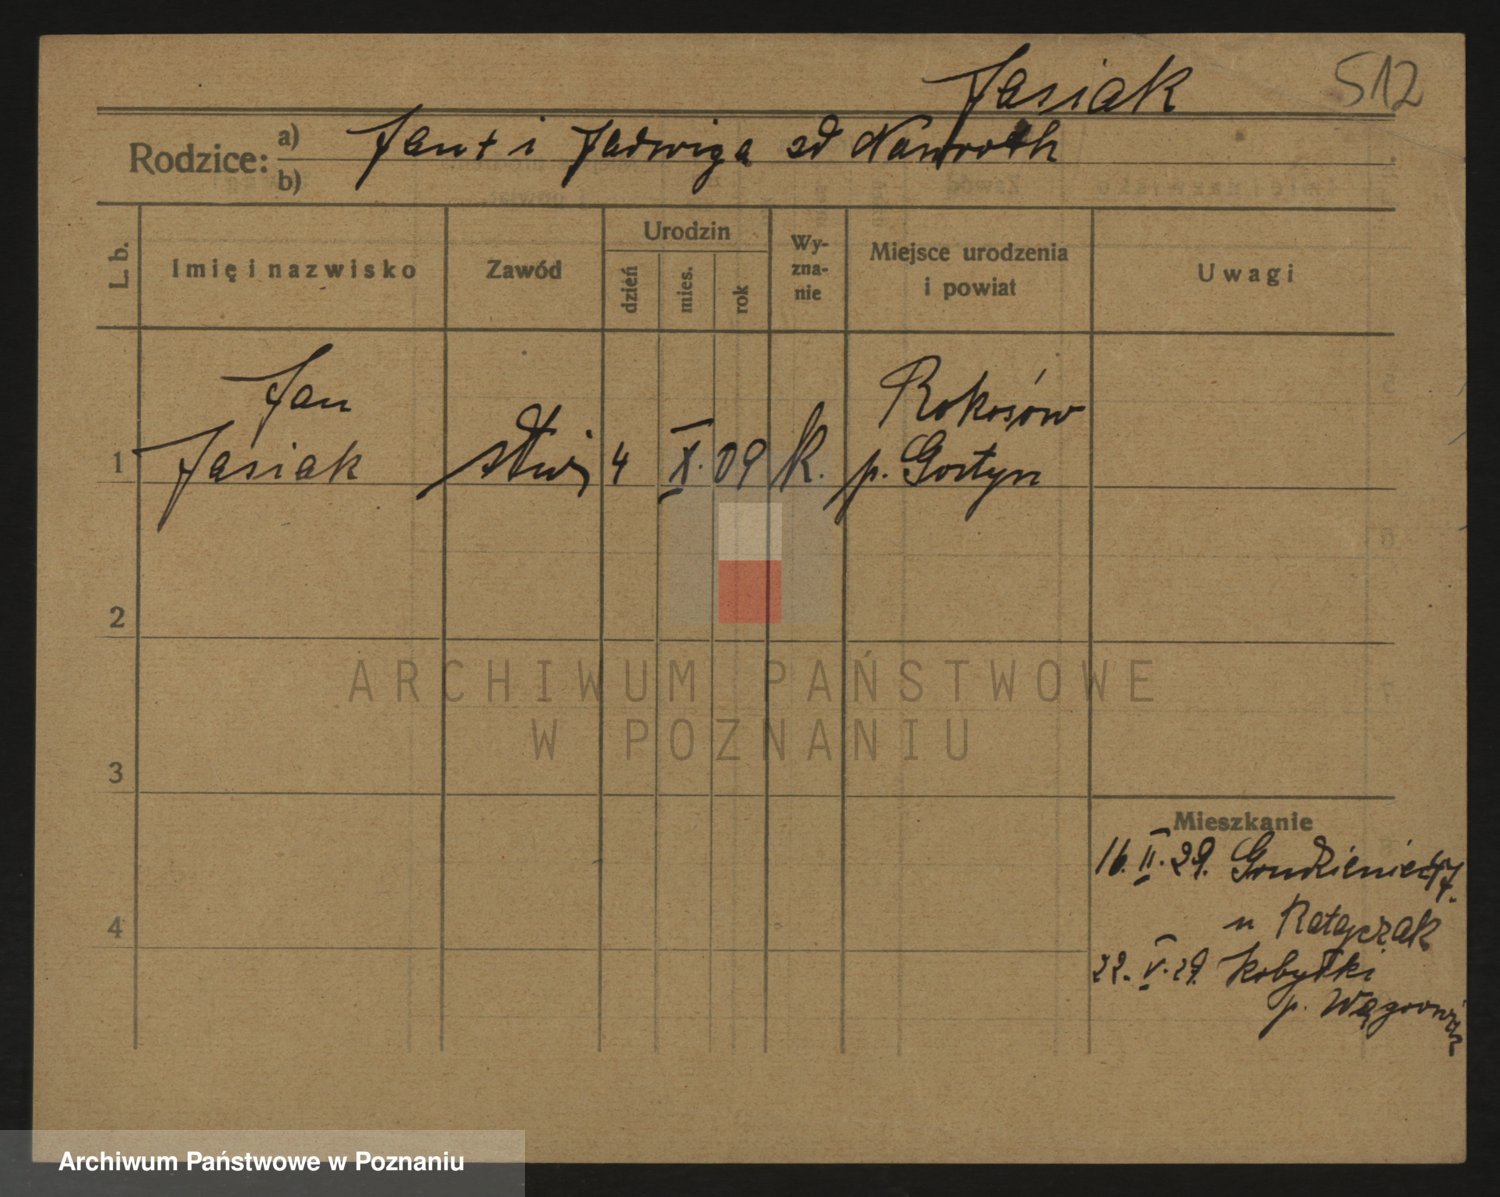 Jasiak
512
Rodzice:
a) Jan + i Jadwiga zd Nawroth
b)
L. b.
Imię i nazwisko
Zawód
Urodzin
dzień
mies.
rok
Wy-
zna-
nie
Miejsce urodzenia
i powiat
Uwagi
Jan
Rokosów
1 Jasiak 4 X. 09 k. p. Gostyn
2
3
4
Mieszkanie
16. II. 29. Grudzieniec 47.
u Ratajczak
22. V. 29. Kobyłki
p. Wągrowiec
ARCHIWUM PAŃSTWOWE
W POZNANIU
Archiwum Państwowe w Poznaniu